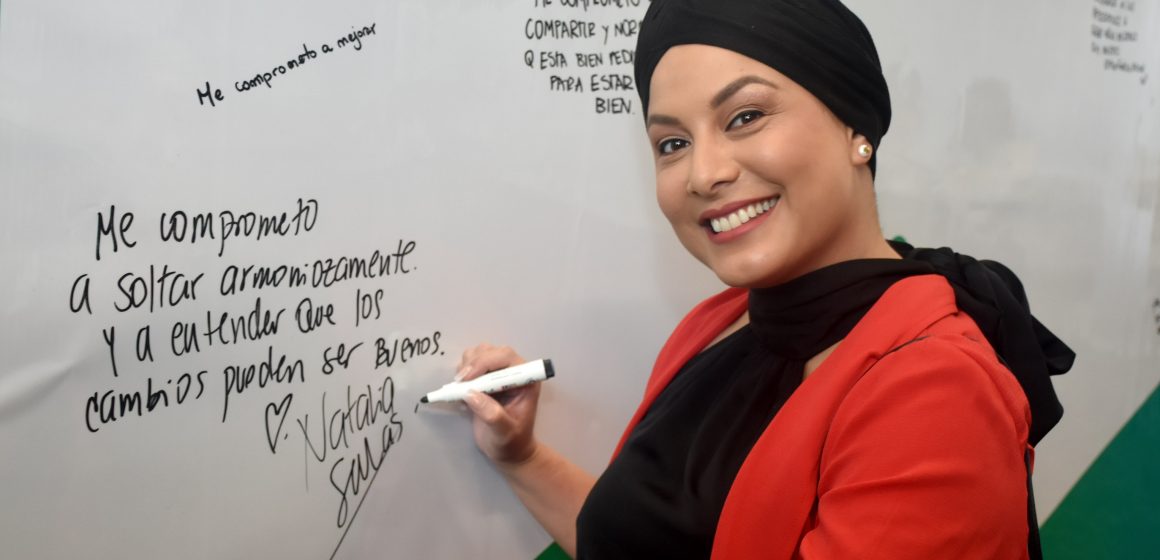 Me comprometo a mejorar
ME COMPROMETO
COMPARTIR Y
Q ESTA BIEN
PARA ESTAR
BIEN.
Me comprometo
a soltar armoniozamente.
Y a entender que los
cambios pueden ser Buenos.
Natalia
Salas